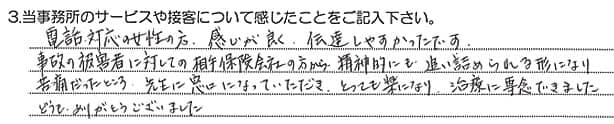 3.当事務所のサービスや接客について感じたことをご記入下さい。
電話対応の女性の方、感じが良く、伝達しやすかったです。
事故の被害者に対しての相手保険会社の方から、精神的にも追い詰められる形になり
苦痛だったところ、先生に窓口になっていただき、とっても楽になり、治療に専念できました
どうもありがとうございました